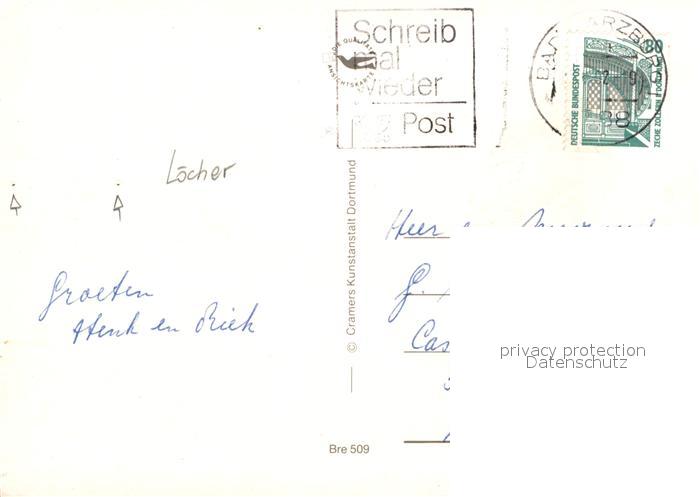 Schreib
mal
wieder
Post
DIE QUALITÄTS
ANSICHTSKARTE
BAD HARZBURG
38
80
DEUTSCHE BUNDESPOST
ZECHE ZOLLERN II DORTMUND
Löcher
Groeten
Henk en Riek
© Cramers Kunstanstalt Dortmund
Bre 509
Heer
G.
Cas
privacy protection
Datenschutz